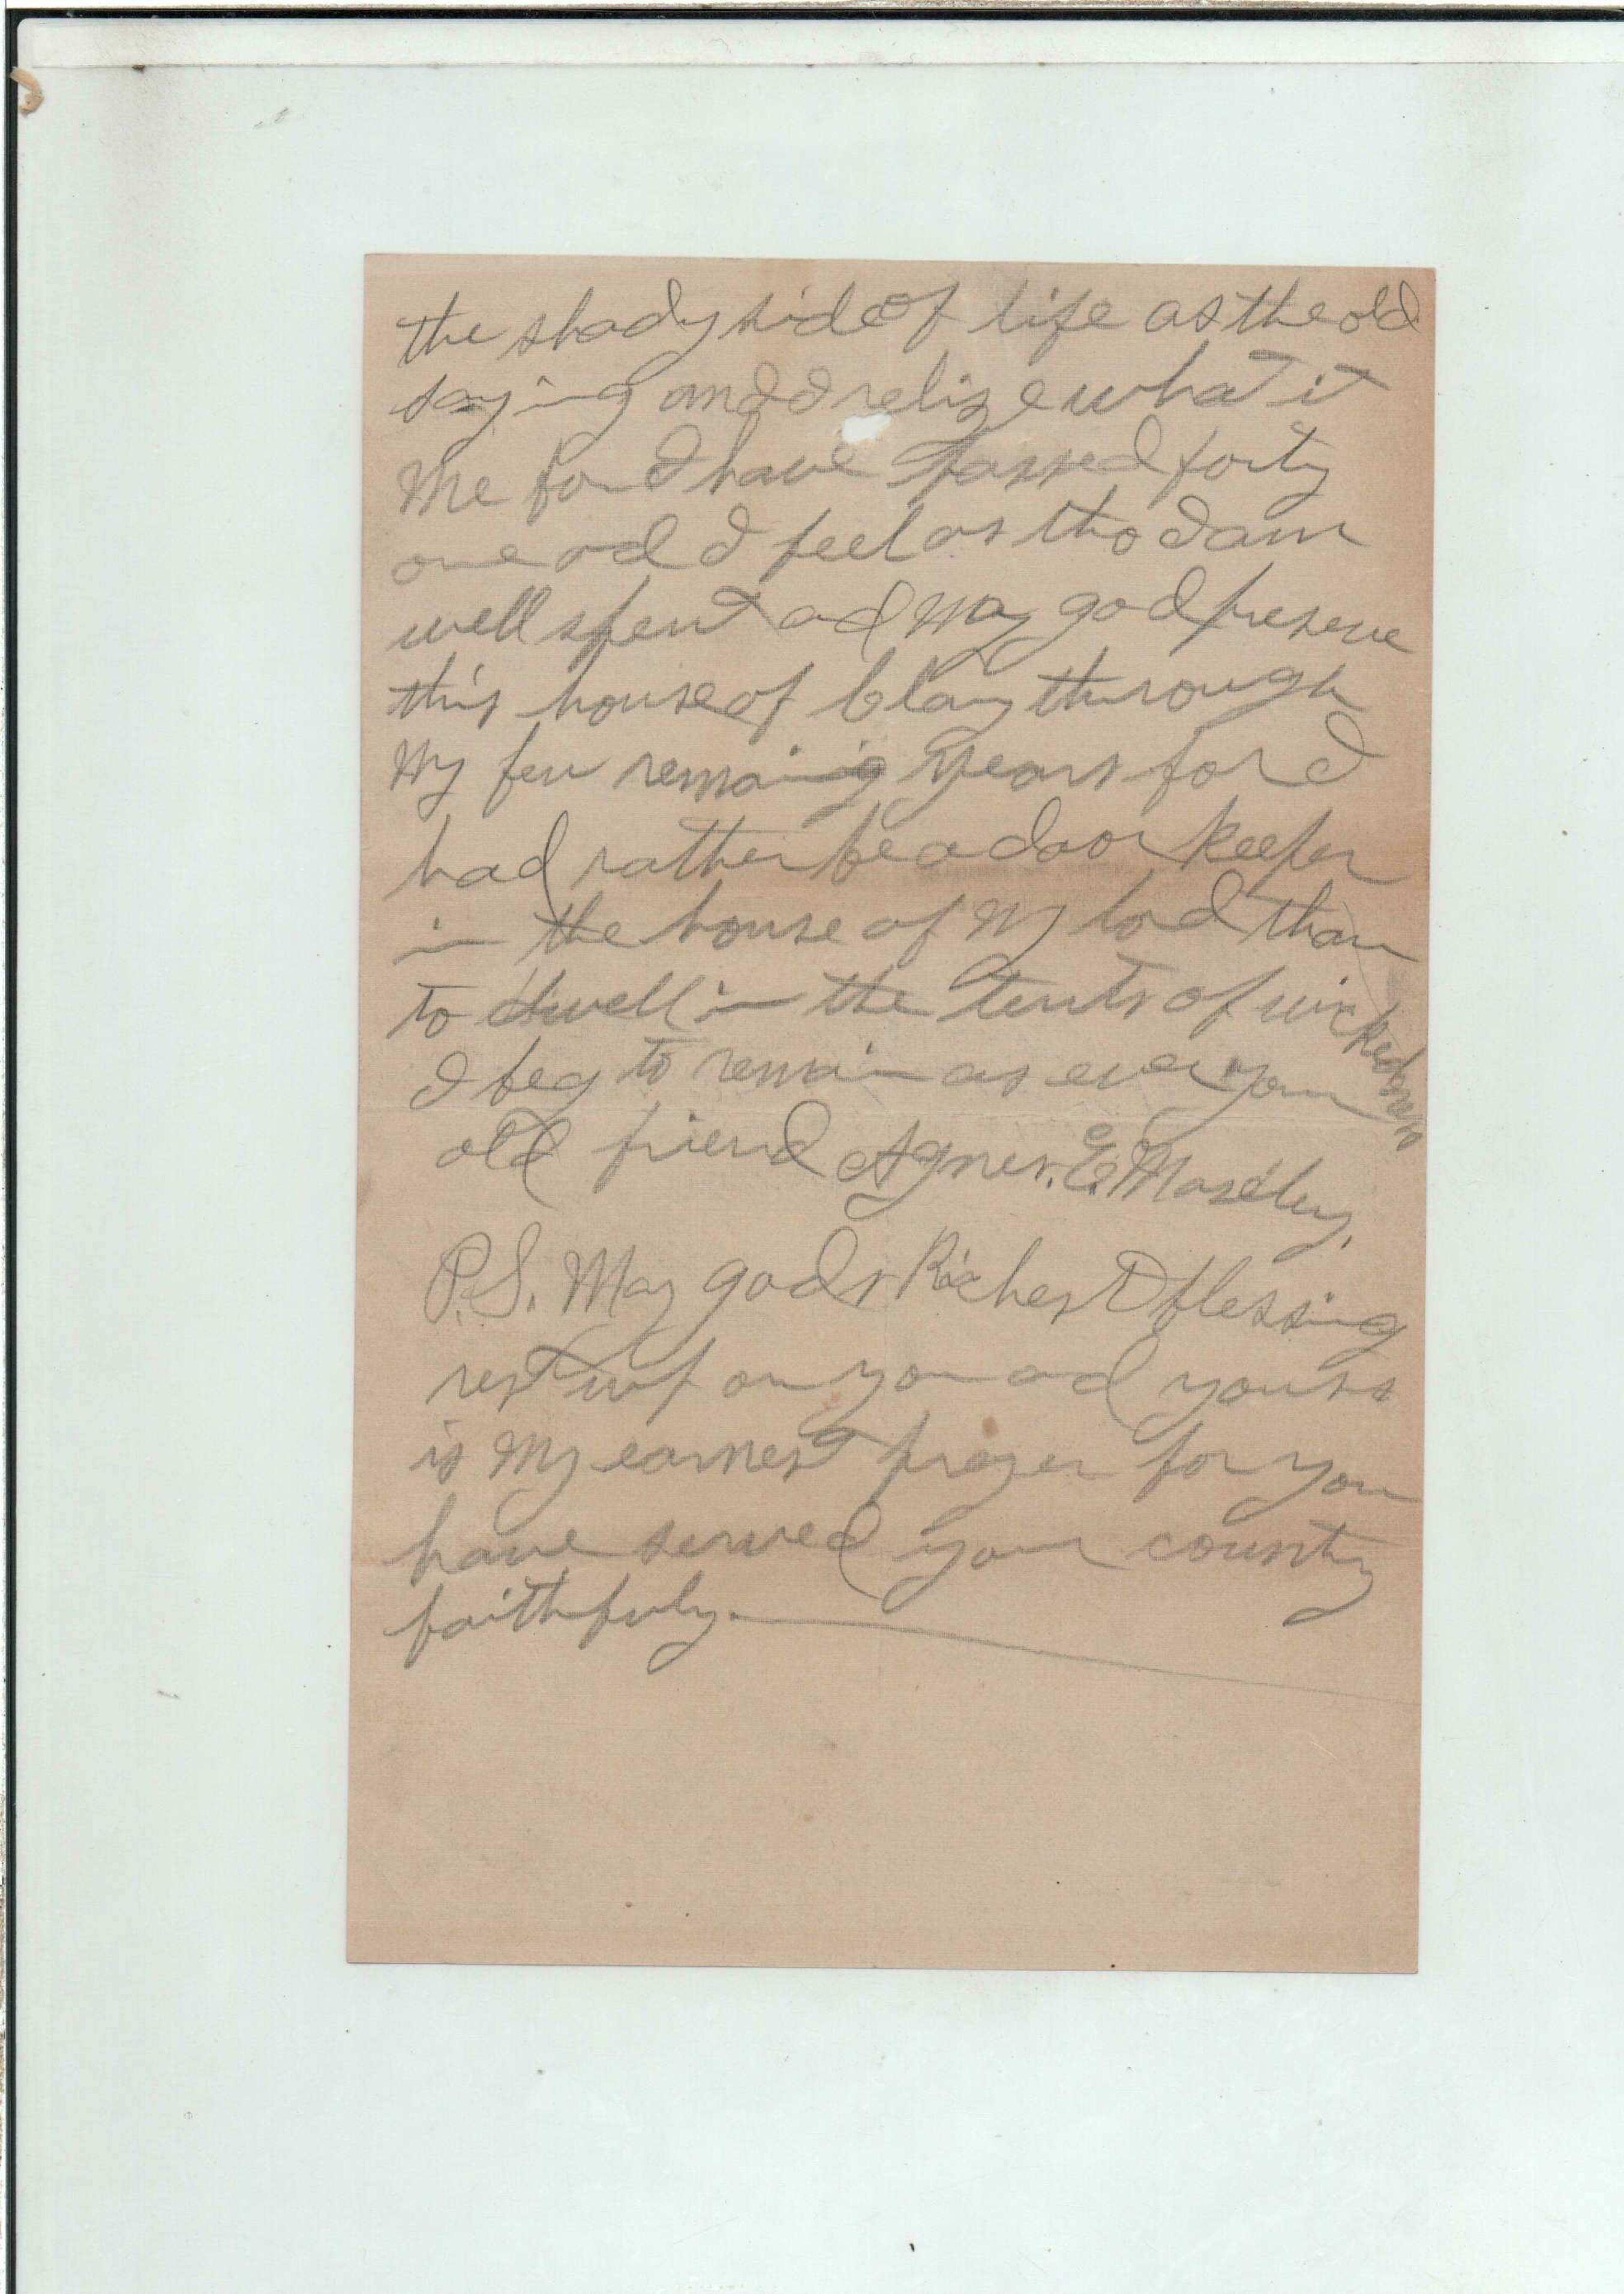 the shady side of life as the old
saying and I relize what it
me for I have passed forty
one ad I feel as tho I am
well spent ad may god preserve
this house of Clay through
my few remainig years for I
had rather be a door keeper
in the house of my lord than
to dwell in the tents of wickedness
I beg to remain as ever your
old friend Agnes. E. Moseley.
P.S. May gods Richest blessing
rest up on you ad yours
is my earnest prayer for you
have served your country
faithfuly.